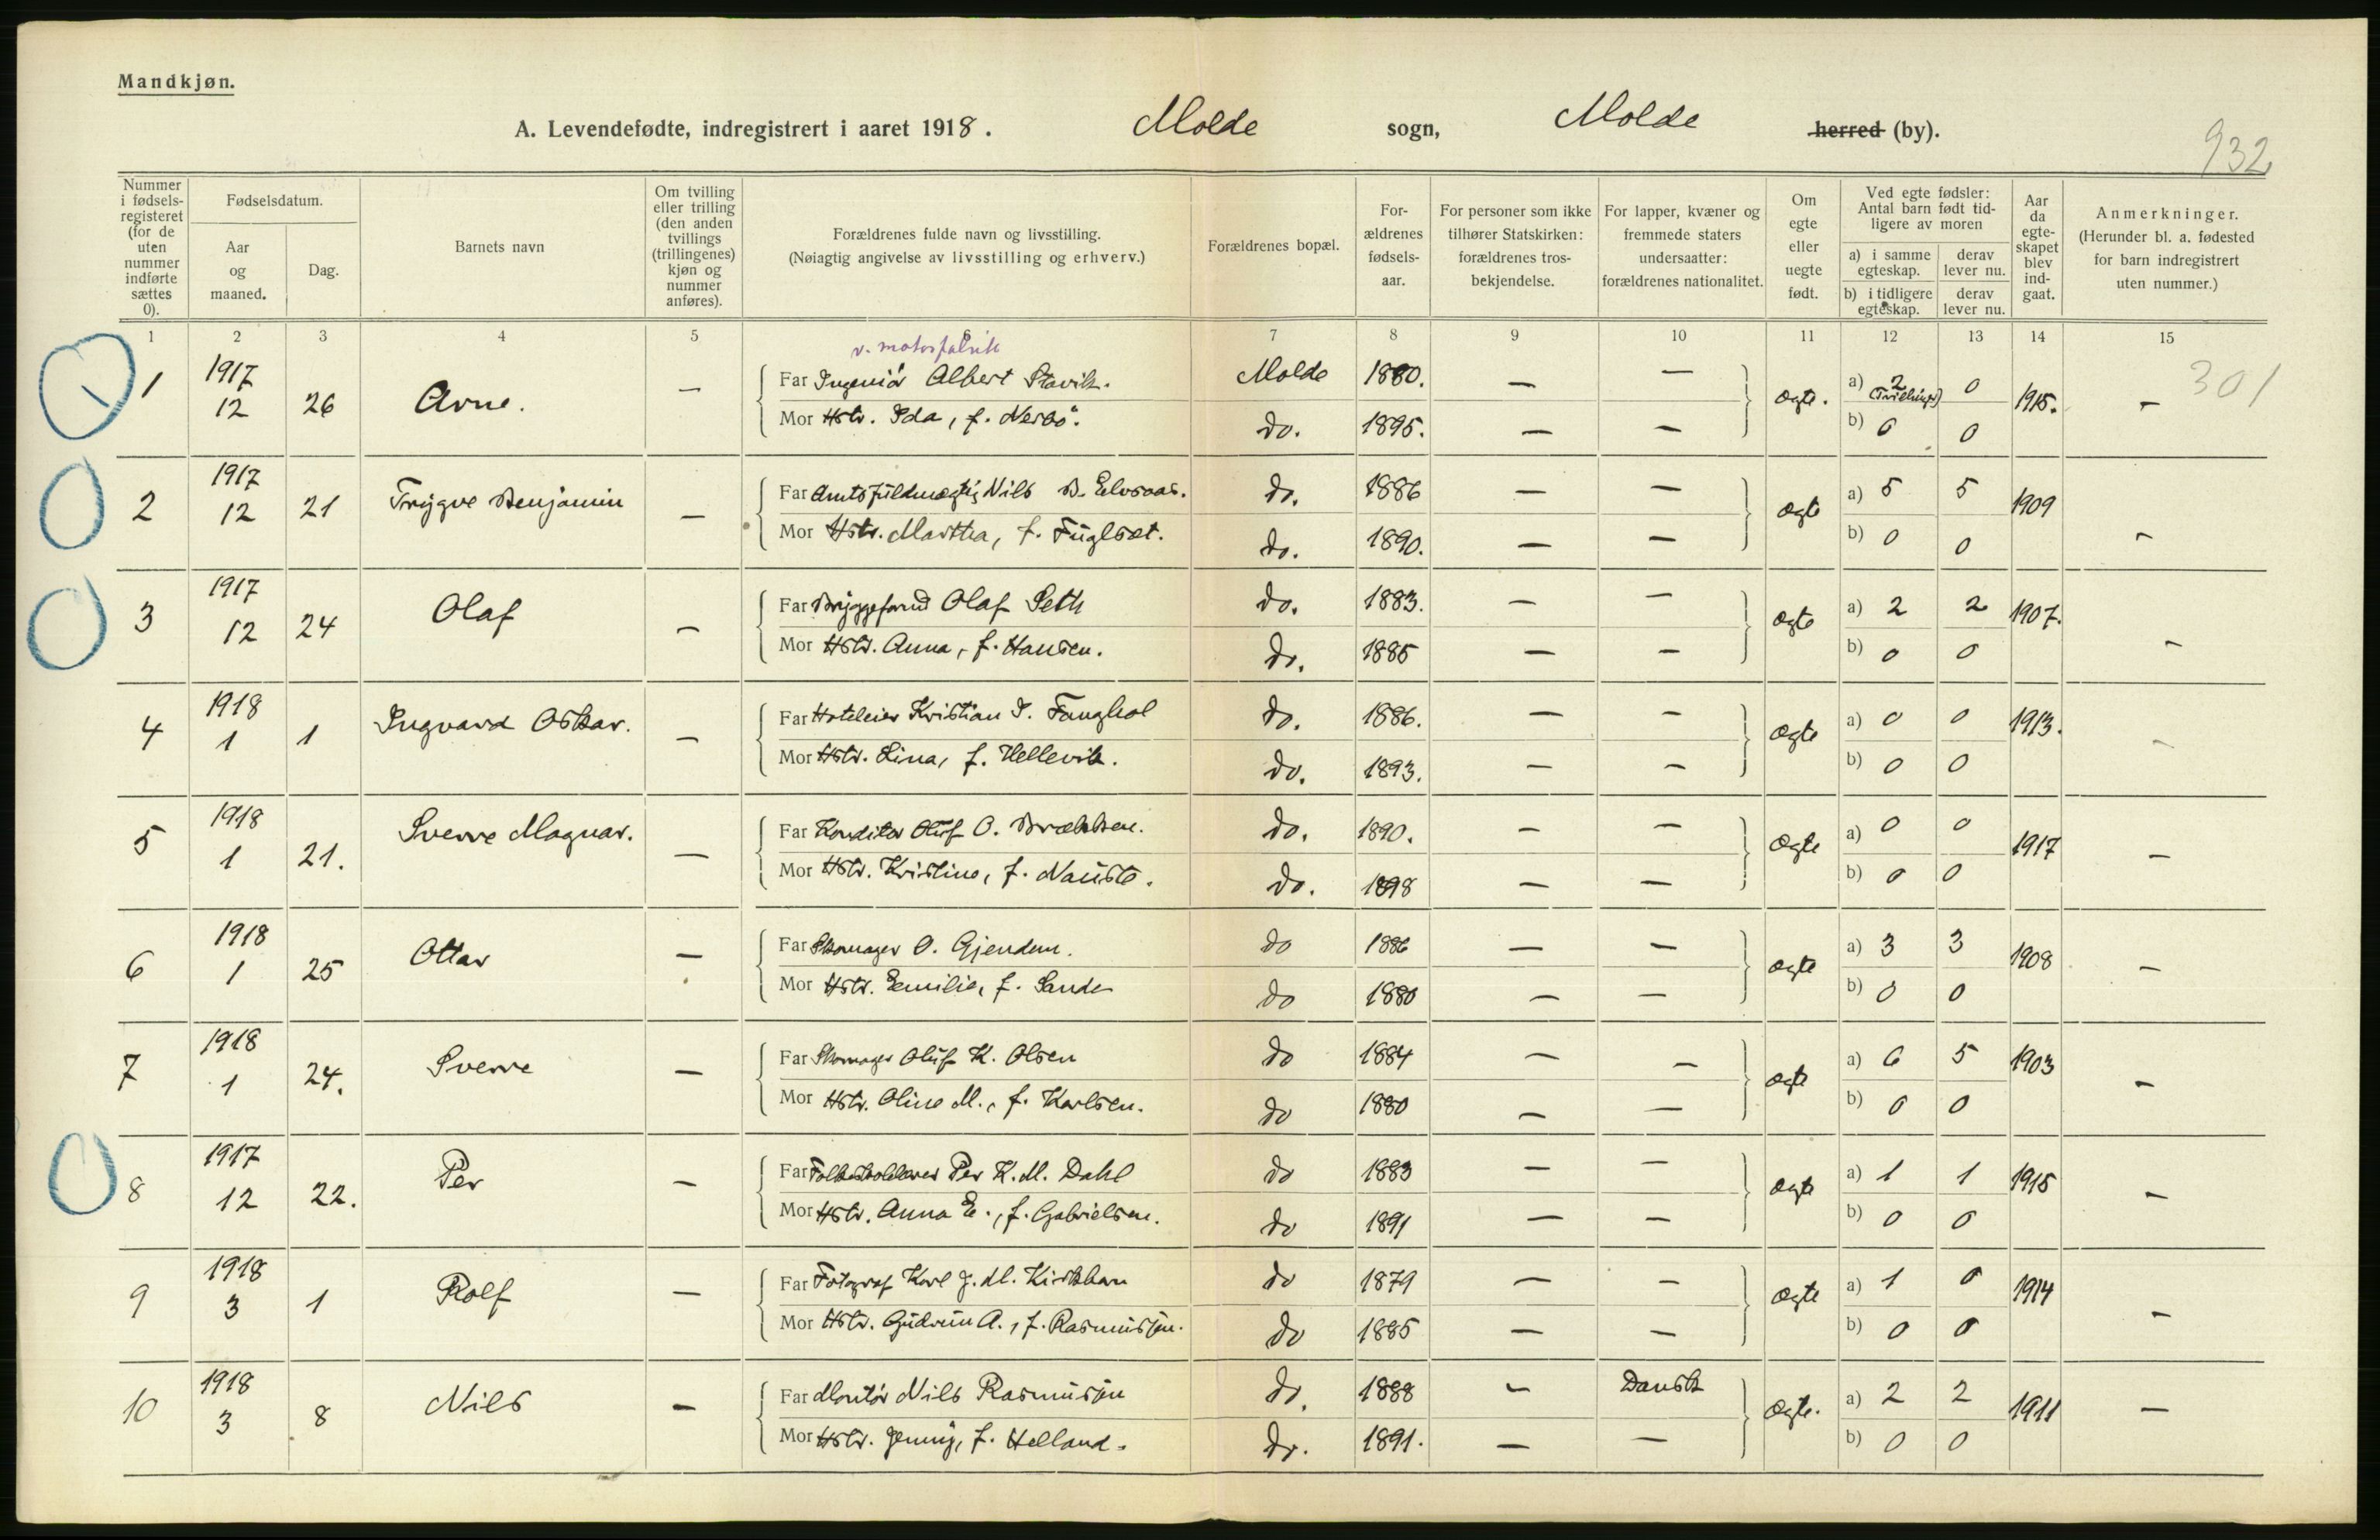 Mandkjøn.
A. Levendefødte, indregistrert i aaret 1918. Molde sogn, Molde herred (by).
932
Nummer i fødsels-registeret (for de uten nummer indførte sættes 0).
Fødselsdatum.
Aar og maaned.
Dag.
Barnets navn
Om tvilling eller trilling (den anden tvillings (trillingenes) kjøn og nummer anføres).
Forældrenes fulde navn og livsstilling.
(Nøiagtig angivelse av livsstilling og erhverv.)
Forældrenes bopæl.
For-ældrenes fødsels-aar.
For personer som ikke tilhører Statskirken: forældrenes tros-bekjendelse.
For lapper, kvæner og fremmede staters undersaatter: forældrenes nationalitet.
Om egte eller uegte født.
Ved egte fødsler: Antal barn født tid-ligere av moren
a) i samme egteskap.
derav lever nu.
b) i tidligere egteskap.
derav lever nu.
Aar da egte-skapet blev ind-gaat.
Anmerkninger.
(Herunder bl. a. fødested for barn indregistrert uten nummer.)
1 2 3 4 5 6 7 8 9 10 11 12 13 14 15
v. motorfabrik
1 1917 12 26 Arne. — Far Ingeniør Albert Stavik. Molde 1880. — — ægte. a) 2 (Tvillinger) 0 1915. — 301
Mor Hstr. Ida, f. Nerbö. do. 1895. — — b) 0 0
2 1917 12 21 Trygve Benjamin — Far Amtsfuldmægtig Nils B. Elvsaas. do. 1886 — — ægte a) 5 5 1909 —
Mor Hstr. Martha, f. Fuglset. do. 1890. — — b) 0 0
3 1917 12 24 Olaf — Far Bryggeformd Olaf Seth do. 1883. — — ægte a) 2 2 1907. —
Mor Hstr. Anna, f. Hansen. do. 1885 — — b) 0 0
4 1918 1 1 Ingvard Oskar. — Far Hoteleier Kristian I. Fanghol do. 1886. — — ægte a) 0 0 1913. —
Mor Hstr. Lina, f. Hellevik. do. 1893. — — b) 0 0
5 1918 1 21. Sverre Magnar. — Far Konditor Oluf O. Brækken. do. 1890. — — ægte a) 0 0 1917 —
Mor Hstr. Kristine, f. Nauste. do. 1898 — — b) 0 0
6 1918 1 25 Ottar — Far Skomager O. Gjendem. do 1886 — — ægte a) 3 3 1908 —
Mor Hstr. Emilie, f. Sande do 1880 — — b) 0 0
7 1918 1 24. Sverre — Far Skomager Oluf K. Olsen do 1884 — — ægte a) 6 5 1903 —
Mor Hstr. Oline M., f. Karlsen. do 1880 — — b) 0 0
8 1917 12 22. Per — Far Folkeskolelærer Per K. M. Dahl do 1883 — — ægte a) 1 1 1915 —
Mor Hstr. Anna E., f. Gabrielsen. do 1891 — — b) 0 0
9 1918 3 1 Rolf — Far Fotograf Karl J. M. Kirkhorn do 1879 — — ægte a) 1 0 1914 —
Mor Hstr. Gudrun A., f. Rasmussen. do 1885 — — b) 0 0
10 1918 3 8 Nils — Far Montør Nils Rasmussen do. 1888 — Dansk ægte. a) 2 2 1911 —
Mor Hstr. Jenny, f. Helland. do. 1891. — — b) 0 0